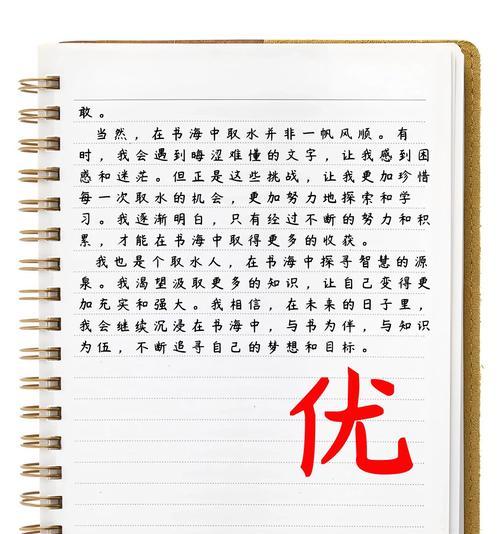 敢。
当然，在书海中取水并非一帆风顺。有
时，我会遇到晦涩难懂的文字，让我感到困
惑和迷茫。但正是这些挑战，让我更加珍惜
每一次取水的机会，更加努力地探索和学
习。我逐渐明白，只有经过不断的努力和积
累，才能在书海中取得更多的收获。
我也是个取水人，在书海中探寻智慧的源
泉。我渴望汲取更多的知识，让自己变得更
加充实和强大。我相信，在未来的日子里，
我会继续沉浸在书海中，与书为伴，与知识
为伍，不断追寻自己的梦想和目标。
优